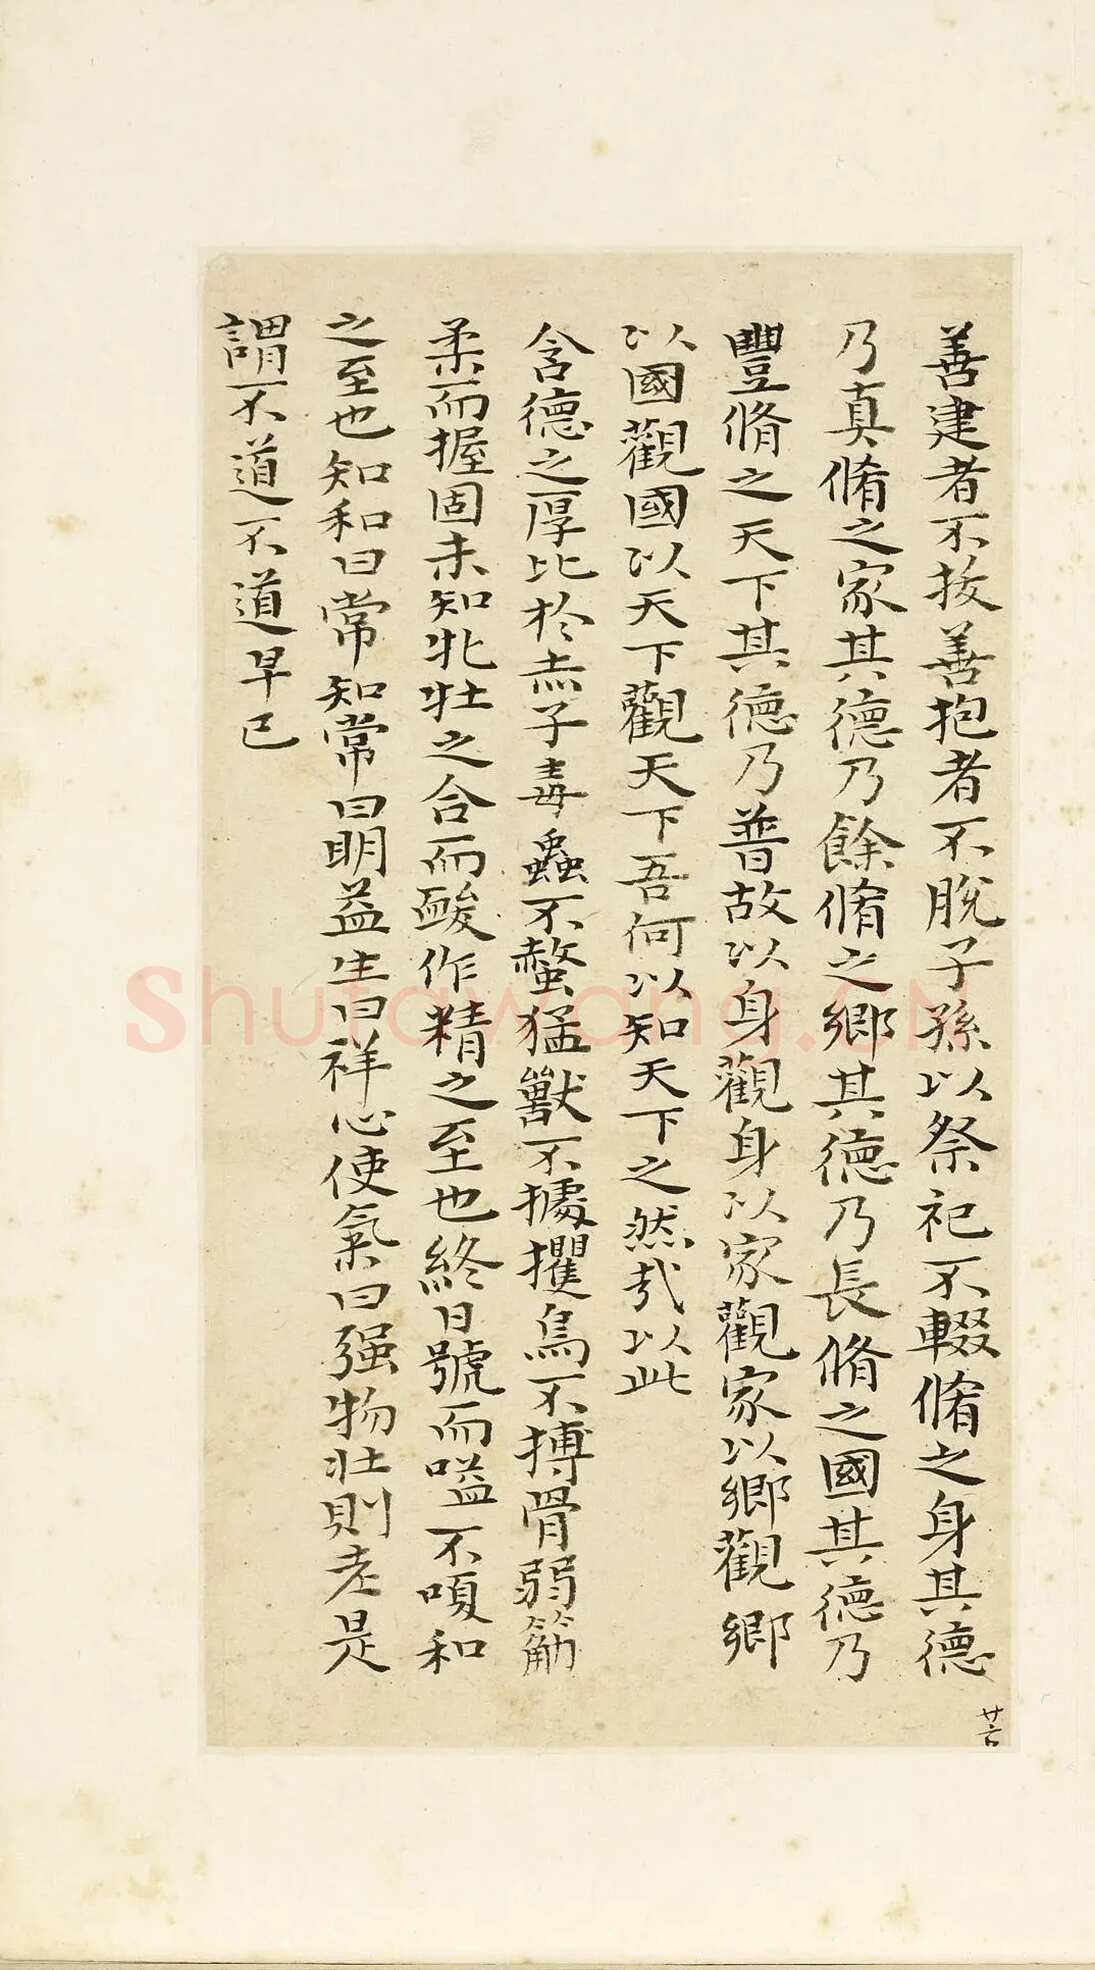 善建者不拔善抱者不脫子孫以祭祀不輟脩之身其德
乃真脩之家其德乃餘脩之鄉其德乃長脩之國其德乃
豐脩之天下其德乃普故以身觀身以家觀家以鄉觀鄉
以國觀國以天下觀天下吾何以知天下之然哉以此
含德之厚比於赤子毒蟲不螫猛獸不據攫鳥不搏骨弱筋
柔而握固未知牝牡之合而䘒作精之至也終日號而嗌不嗄和
之至也知和曰常知常曰明益生曰祥心使氣曰强物壯則老是
謂不道不道早已
廿六
Shufawang.CN